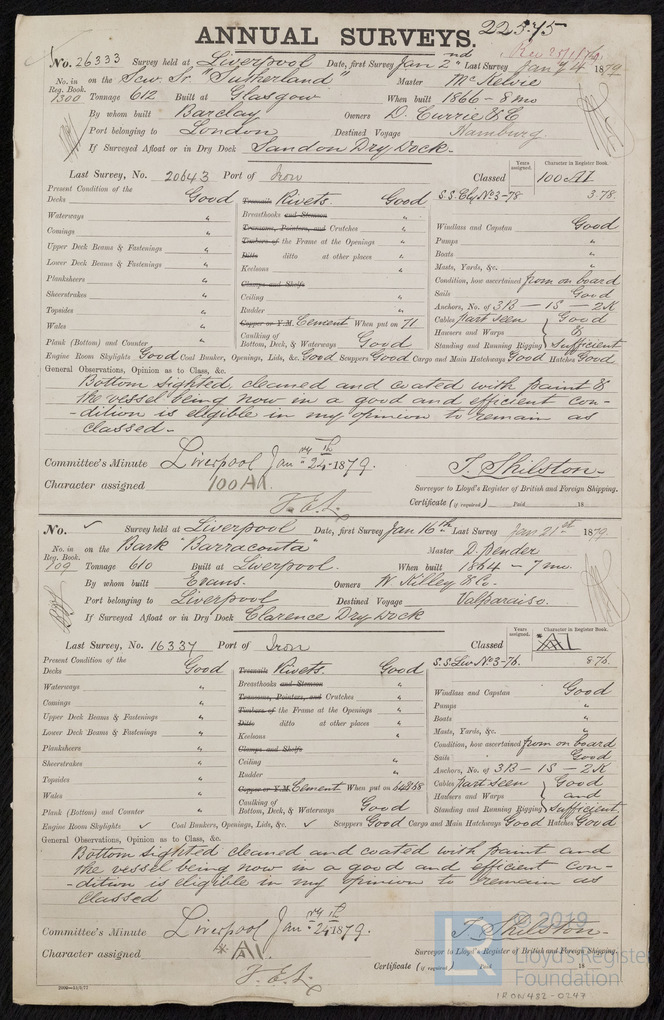 ANNUAL SURVEYS. 22575
No. 26333 Survey held at Liverpool Date, first Survey Jan 2nd Last Survey Jany 4 1879
No. in Reg. Book. 1300 on the Scw. Sr "Sutherland" Master McKelvie
Tonnage 612 Built at Glasgow When built 1866 - 8 mo
By whom built Barclay Owners D. Currie & C
Port belonging to London Destined Voyage Hamburg
If Surveyed Afloat or in Dry Dock Sandon Dry Dock.
Last Survey, No. 20643 Port of Iron Classed Years assigned. Character in Register Book. 100 A1
Present Condition of the S.S. No 3-78 3.78.
Decks Good Treenails Rivets. Good
Waterways " Breasthooks and Stemson " Windlass and Capstan Good
Comings " Transoms, Pointers, and Crutches " Pumps "
Upper Deck Beams & Fastenings " Timbers of the Frame at the Openings " Boats "
Lower Deck Beams & Fastenings " Ditto ditto at other places " Masts, Yards, &c. "
Planksheers " Keelsons " Condition, how ascertained from on board
Sheerstrakes " Clamps and Shelfs Sails Good
Topsides " Ceiling " Anchors, No. of 3B - 1S - 2K
Wales " Rudder " Cables part seen Good
Copper or Y.M. Cement When put on 71 Hawsers and Warps &
Plank (Bottom) and Counter " Caulking of Bottom, Deck, & Waterways Good Standing and Running Rigging Sufficient
Engine Room Skylights Good Coal Bunker, Openings, Lids, &c. Good Scuppers Good Cargo and Main Hatchways Good Hatches Good
General Observations, Opinion as to Class, &c.
Bottom sighted, cleaned and coated with paint &
the vessel being now in a good and efficient con-
-dition is eligible in my opinion to remain as
classed -
Committee's Minute Liverpool Jany 24th 1879. T. Shilston
Character assigned 100 A1. Surveyor to Lloyd's Register of British and Foreign Shipping.
Certificate (if required) Paid 18
No. ✓ Survey held at Liverpool Date, first Survey Jan 16th Last Survey Jan 21st 1879
No. in Reg. Book. 109 on the Bark "Barracouta" Master D. Pender
Tonnage 610 Built at Liverpool. When built 1864 - 7 mo.
By whom built Evans. Owners W Killey & Co.
Port belonging to Liverpool Destined Voyage Valparaiso.
If Surveyed Afloat or in Dry Dock Clarence Dry Dock
Last Survey, No. 16337 Port of Iron Classed Years assigned. Character in Register Book.
Present Condition of the S.S. Liv No 3-76. 8 76.
Decks Good Treenails Rivets. Good
Waterways " Breasthooks and Stemson " Windlass and Capstan Good
Comings " Transoms, Pointers, and Crutches " Pumps "
Upper Deck Beams & Fastenings " Timbers of the Frame at the Openings " Boats "
Lower Deck Beams & Fastenings " Ditto ditto at other places " Masts, Yards, &c. "
Planksheers " Keelsons " Condition, how ascertained from on board
Sheerstrakes " Clamps and Shelfs Sails Good
Topsides " Ceiling " Anchors, No. of 3B - 1S - 2K
Wales " Rudder " Cables part seen Good
Copper or Y.M. Cement When put on 64&68 Hawsers and Warps and
Plank (Bottom) and Counter " Caulking of Bottom, Deck, & Waterways Good Standing and Running Rigging Sufficient
Engine Room Skylights ✓ Coal Bunkers, Openings, Lids, &c. ✓ Scuppers Good Cargo and Main Hatchways Good Hatches Good
General Observations, Opinion as to Class, &c.
Bottom sighted cleaned and coated with paint and
the vessel being now in a good and efficient con-
-dition is eligible in my opinion to remain as
classed
Committee's Minute Liverpool Jany 24th 1879. T. Shilston
Character assigned Surveyor to Lloyd's Register of British and Foreign Shipping.
Certificate (if required) Paid 18
LR © 2019
Lloyd's Register
Foundation
IRON432-0247